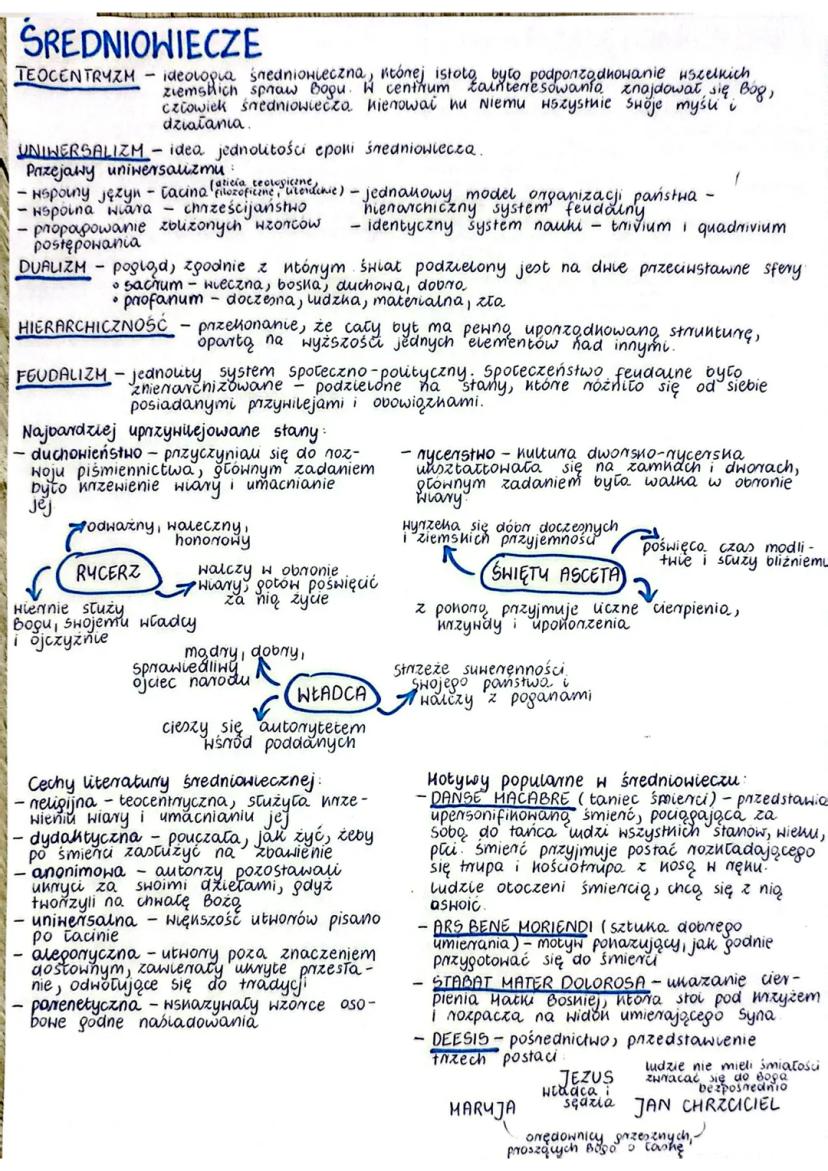 ŚREDNIOWIECZE
TEOCENTRYZM – ideologia średniowieczna, której istotą było podporządkowanie wszelkich
ziemskich spraw Bogu. W centrum zainteresowania znajdował się Bóg,
człowiek średniowiecza kierował ku Niemu wszystkie swoje myśli i
działania.
UNIWERSALIZM – idea jednolitości epoki średniowiecza.
Przejawy uniwersalizmu:
– wspólny język – łacina (dzieła teologiczne, filozoficzne, literackie)
– wspólna wiara – chrześcijaństwo
– propagowanie zbliżonych wzorców
postępowania
– jednakowy model organizacji państwa –
hierarchiczny system feudalny
– identyczny system nauki – trivium i quadrivium
DUALIZM – pogląd, zgodnie z którym świat podzielony jest na dwie przeciwstawne sfery
• sacrum – wieczna, boska, duchowa, dobra
• profanum – doczesna, ludzka, materialna, zła
HIERARCHICZNOŚĆ – przekonanie, że cały byt ma pewną uporządkowaną strukturę,
opartą na wyższości jednych elementów nad innymi.
FEUDALIZM – jednolity system społeczno-polityczny. Społeczeństwo feudalne było
zhierarchizowane – podzielone na stany, które różniło się od siebie
posiadanymi przywilejami i obowiązkami.
Najbardziej uprzywilejowane stany:
– duchowieństwo – przyczyniali się do roz-
woju piśmiennictwa, głównym zadaniem
było krzewienie wiary i umacnianie
jej
– rycerstwo – kultura dworsko-rycerska
ukształtowała się na zamkach i dworach,
głównym zadaniem była walka w obronie
wiary.
odważny, waleczny,
honorowy
RYCERZ
walczy w obronie
wiary, gotów poświęcić
za nią życie
wiernie służy
Bogu, swojemu władcy
i ojczyźnie
wyrzeka się dóbr doczesnych
i ziemskich przyjemności
poświęca czas modli-
twie i służy bliźniemu
ŚWIĘTY ASCETA
z pokorą przyjmuje liczne cierpienia,
krzywdy i upokorzenia
mądry, dobry,
sprawiedliwy
ojciec narodu
WŁADCA
strzeże suwerenności
swojego państwa i
walczy z poganami
cieszy się autorytetem
wśród poddanych
Cechy literatury średniowiecznej:
– religijna – teocentryczna, służyła krze-
wieniu wiary i umacnianiu jej
– dydaktyczna – pouczała, jak żyć, żeby
po śmierci zasłużyć na zbawienie
– anonimowa – autorzy pozostawali
ukryci za swoimi dziełami, gdyż
tworzyli na chwałę Bożą
– uniwersalna – większość utworów pisano
po łacinie
– alegoryczna – utwory poza znaczeniem
dosłownym, zawierały ukryte przesła-
nie, odwołujące się do tradycji
– parenetyczna – wskazywały wzorce oso-
bowe godne naśladowania
Motywy popularne w średniowieczu:
– DANSE MACABRE (taniec śmierci) – przedstawia
upersonifikowaną śmierć, pociągającą za
sobą do tańca ludzi wszystkich stanów, wieku,
płci. Śmierć przyjmuje postać rozkładającego
się trupa i kościotrupa z kosą w ręku.
Ludzie otoczeni śmiercią, chcą się z nią
oswoić.
– ARS BENE MORIENDI (sztuka dobrego
umierania) – motyw pokazujący, jak godnie
przygotować się do śmierci
– STABAT MATER DOLOROSA – ukazanie cier-
pienia Matki Boskiej, która stoi pod krzyżem
i rozpacza na widok umierającego Syna.
– DEESIS – pośrednictwo, przedstawienie
trzech postaci:
JEZUS
władca i
sędzia
ludzie nie mieli śmiałości
zwracać się do Boga
bezpośrednio
MARYJA
JAN CHRZCICIEL
orędownicy grzesznych,
proszących Boga o łaskę